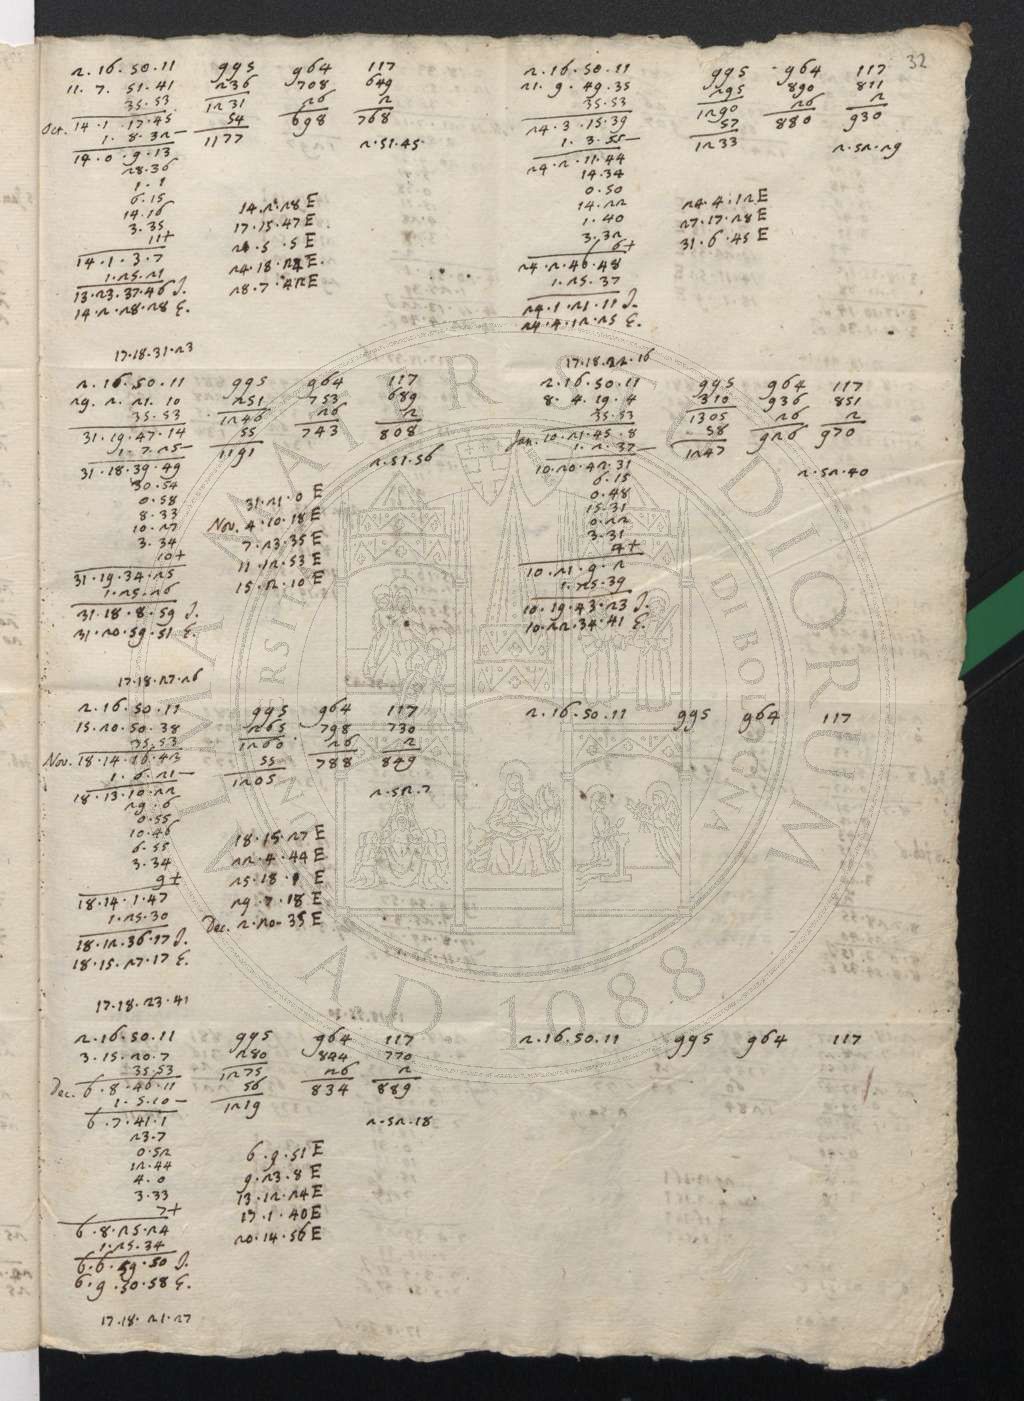 32
2.16.50.11 995 964 117
11.7.51.41 236 708 649
35.53 1231 26 2
Oct. 14.1.17.45 54 698 768
1.8.32— 1177
14.0.9.13 2.51.45
28.36
1.1
6.15
14.16 14.2.28 E
3.35 17.15.47 E
11+ 21.5.5 E
14.1.3.7 24.18.24 E.
1.25.21 28.7.42 E
13.23.37.46 J.
14.2.28.28 E.
17.18.31.23
2.16.50.11 995 964 117
21.9.49.35 295 890 811
35.53 1290 26 2
24.3.15.39 57 880 930
1.3.55— 1233
24.2.11.44 2.52.29
14.34
0.50
14.22 24.4.12 E
1.40 27.17.28 E
3.32 31.6.45 E
6+
24.2.46.48
1.25.37
24.1.21.11 J.
24.4.12.25 E.
17.18.22.16
2.16.50.11 995 964 117
29.2.21.10 251 753 689
35.53 1246 26 2
31.19.47.14 55 743 808
1.7.25— 1191
31.18.39.49 2.51.56
30.54
0.58
8.33 31.21.0 E
10.27 Nov. 4.10.18 E
3.34 7.23.35 E
10+ 11.12.53 E
31.19.34.25 15.2.10 E
1.25.26
31.18.8.59 J.
31.20.59.51 E.
17.18.27.26
2.16.50.11 995 964 117
8.4.19.4 310 936 851
35.53 1305 26 2
Jan. 10.21.45.8 58 926 970
1.2.37— 1247
10.20.42.31 2.52.40
6.15
0.48
15.31
0.22
3.31
4+
10.21.9.2
1.25.39
10.19.43.23 J.
10.22.34.41 E.
2.16.50.11 995 964 117
15.20.50.38 265 798 730
35.53 1260 26 2
Nov. 18.14.16.42 55 788 849
1.6.21— 1205
18.13.10.22 2.52.7
29.6
0.55
10.46
6.55 18.15.27 E
3.34 22.4.44 E
9+ 25.18.1 E
18.14.1.47 29.7.18 E
1.25.30 Dec. 2.20.35 E
18.12.36.17 J.
18.15.27.17 E.
17.18.23.41
2.16.50.11 995 964 117
2.16.50.11 995 964 117
3.15.20.7 280 844 770
35.53 1275 26 2
Dec. 6.8.46.11 56 834 889
1.5.10— 1219
6.7.41.1 2.52.18
23.7
0.52
12.44 6.9.51 E
4.0 9.23.8 E
3.33 13.12.24 E
7+ 17.1.40 E
6.8.25.24 20.14.56 E
1.25.34
6.6.59.50 J.
6.9.50.58 E.
17.18.21.27
2.16.50.11 995 964 117